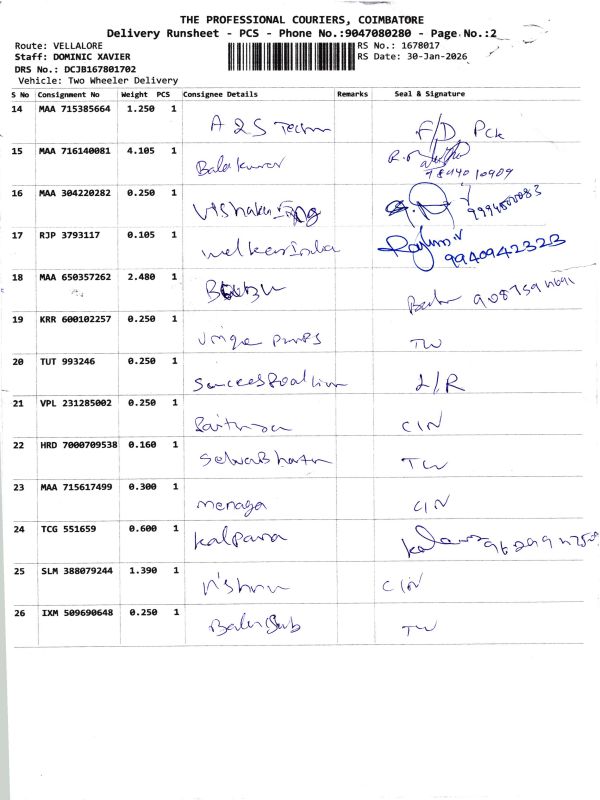 THE PROFESSIONAL COURIERS, COIMBATORE
Delivery Runsheet - PCS - Phone No.:9047080280 - Page No.:2
Route: VELLALORE
RS No.: 1678017
Staff: DOMINIC XAVIER
RS Date: 30-Jan-2026
DRS No.: DCJB167801702
Vehicle: Two Wheeler Delivery
S No Consignment No Weight PCS Consignee Details Remarks Seal & Signature
14 MAA 715385664 1.250 1
A2S F/D Pck
15 MAA 716140081 4.105 1
Balakumar
16 MAA 304220282 0.250 1
17 RJP 3793117 0.105 1
9940942323
18 MAA 650357262 2.480 1
19 KRR 600102257 0.250 1
Unique Pumps TW
20 TUT 993246 0.250 1
L/R
21 VPL 231285002 0.250 1
CIN
22 HRD 7000709538 0.160 1
TW
23 MAA 715617499 0.300 1
menaga CIN
24 TCG 551659 0.600 1
Kalpana
25 SLM 388079244 1.390 1
CIN
26 IXM 509690648 0.250 1
TW